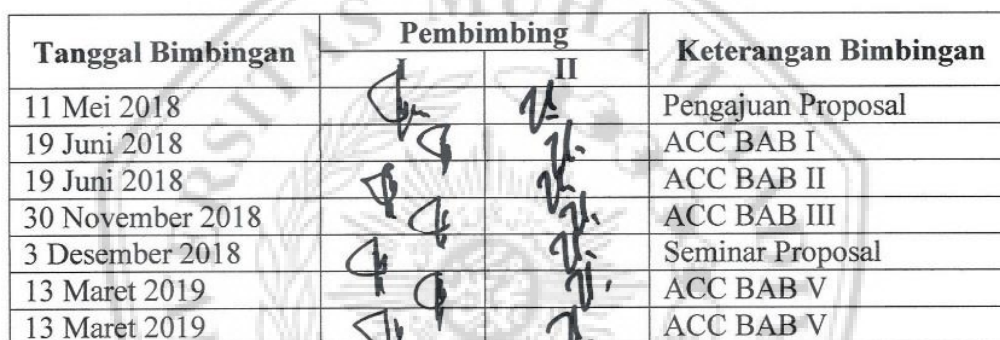 Tanggal Bimbingan Pembimbing Keterangan Bimbingan
I II
11 Mei 2018 Pengajuan Proposal
19 Juni 2018 ACC BAB I
19 Juni 2018 ACC BAB II
30 November 2018 ACC BAB III
3 Desember 2018 Seminar Proposal
13 Maret 2019 ACC BAB V
13 Maret 2019 ACC BAB V